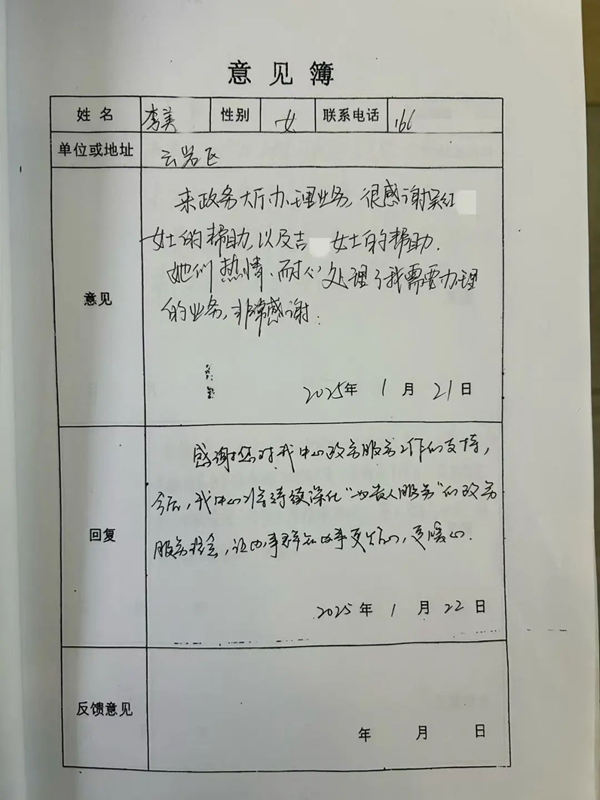 意见簿
姓名 李美 性别 女 联系电话 166
单位或地址 云岩区
意见
来政务大厅办理业务,很感谢吴红
女士的帮助,以及吉 女士的帮助.
她们热情、耐心处理了我需要办理
的业务,非常感谢.
2025年 1 月 21 日
回复
感谢您对我中心政务服务工作的支持,
今后,我中心将持续深化“ 贵人服务”的政务
服务 ,让办事群众办事更 心,更暖心.
2025 年 1 月 22 日
反馈意见
年 月 日